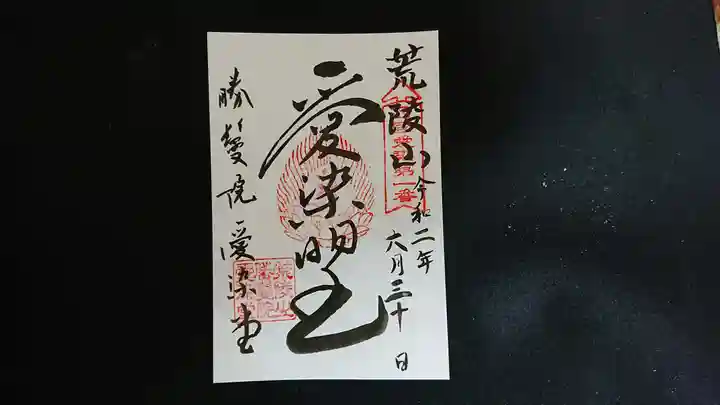 荒陵山
令和二年
六月三十日
愛染明王
勝鬘院愛染堂